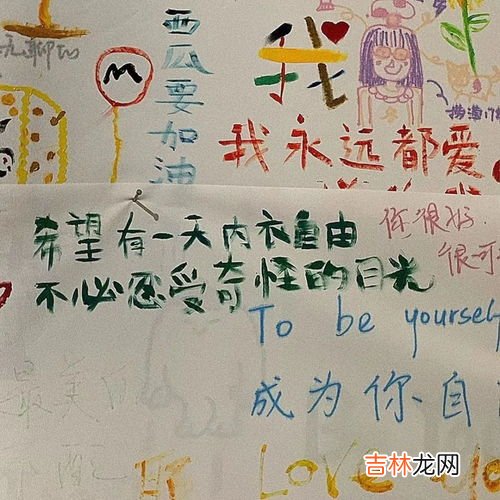 无聊的
M
西瓜要加油
我
我永远都爱
希望有一天内衣自由
不必忍受奇怪的目光
你很好
很可
To be yourself
成为你自
最美
LOVE
吉林龙网